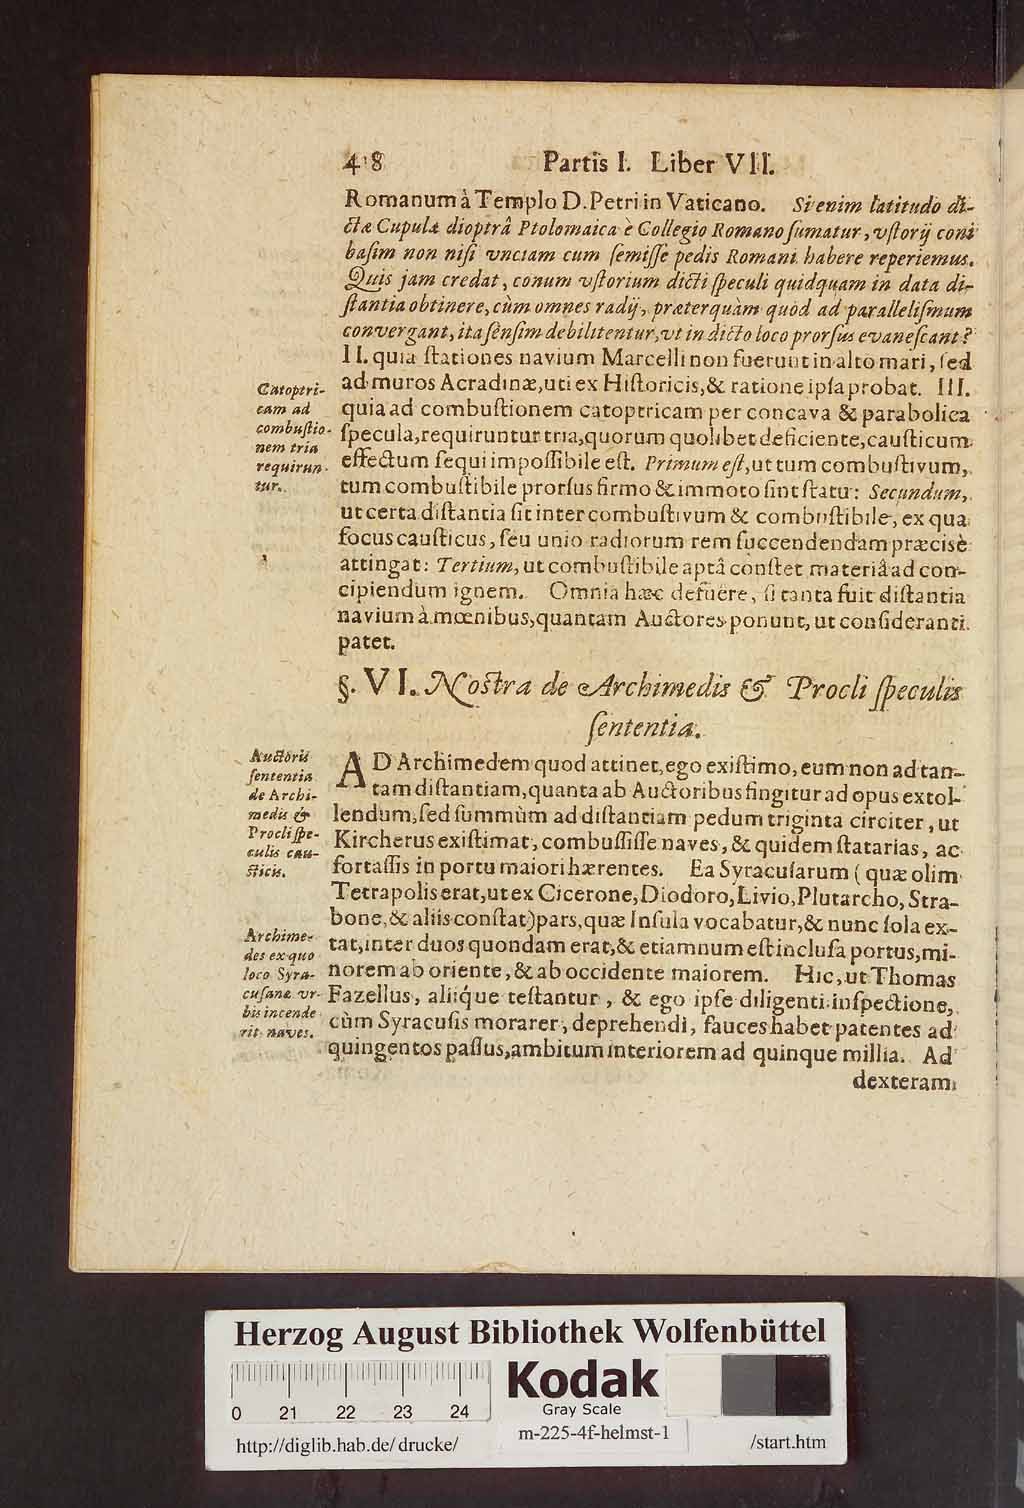 418 Partis I. Liber VII.
Romanum à Templo D. Petri in Vaticano. Si enim latitudo di-
ctæ Cupulæ dioptrâ Ptolomaica è Collegio Romano sumatur, vstorij coni
basim non nisi vnciam cum semisse pedis Romani habere reperiemus.
Quis jam credat, conum vstorium dicti speculi quidquam in data di-
stantia obtinere, cùm omnes radij, præterquàm quòd ad parallelismum
convergant, ita sensim debilitentur, vt in dicto loco prorsus evanescant?
II. quia stationes navium Marcelli non fuerunt in alto mari, sed
ad muros Acradinæ, uti ex Historicis, & ratione ipsa probat. III.
quia ad combustionem catoptricam per concava & parabolica
specula, requiruntur tria, quorum quolibet deficiente, causticum
effectum sequi impossibile est. Primum est, ut tum combustivum,
tum combustibile prorsus firmo & immoto sint statu: Secundum,
ut certa distantia sit inter combustivum & combustibile, ex qua
focus causticus, seu unio radiorum rem succendendam præcisè
attingat: Tertium, ut combustibile aptâ constet materiâ ad con-
cipiendum ignem. Omnia hæc defuêre, si tanta fuit distantia
navium à mœnibus, quantam Auctores ponunt, ut consideranti
patet.
Catoptri-
cam ad
combustio-
nem tria
requirun-
tur.
§. VI. Nostra de Archimedis & Procli speculis
sententia.
AD Archimedem quod attinet, ego existimo, eum non ad tan-
tam distantiam, quanta ab Auctoribus fingitur ad opus extol-
lendum, sed summùm ad distantiam pedum triginta circiter, ut
Kircherus existimat, combussisse naves, & quidem statarias, ac
fortassis in portu maiori hærentes. Ea Syracusarum (quæ olim
Tetrapolis erat, ut ex Cicerone, Diodoro, Livio, Plutarcho, Stra-
bone, & aliis constat) pars, quæ Insula vocabatur, & nunc sola ex-
tat, inter duos quondam erat, & etiamnum est inclusa portus, mi-
norem ab oriente, & ab occidente maiorem. Hic, ut Thomas
Fazellus, aliique testantur, & ego ipse diligenti inspectione,
cùm Syracusis morarer, deprehendi, fauces habet patentes ad
quingentos passus, ambitum interiorem ad quinque millia. Ad
dexteram
Auctoris
sententia
de Archi-
medis &
Procli spe-
culis cau-
sticis.
Archime-
des ex quo
loco Syra-
cusanæ vr-
bis incende
rit naves.
Herzog August Bibliothek Wolfenbüttel
0 21 22 23 24
Kodak
Gray Scale
http://diglib.hab.de/drucke/
m-225-4f-helmst-1
/start.htm